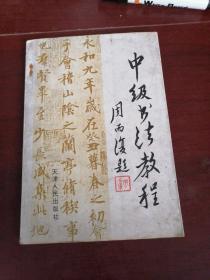 中级书法教程
周而复题
永和九年歲在癸丑暮春之初會
于會稽山陰之蘭亭脩稧事
也群賢畢至少長咸集此地
天津人民出版社